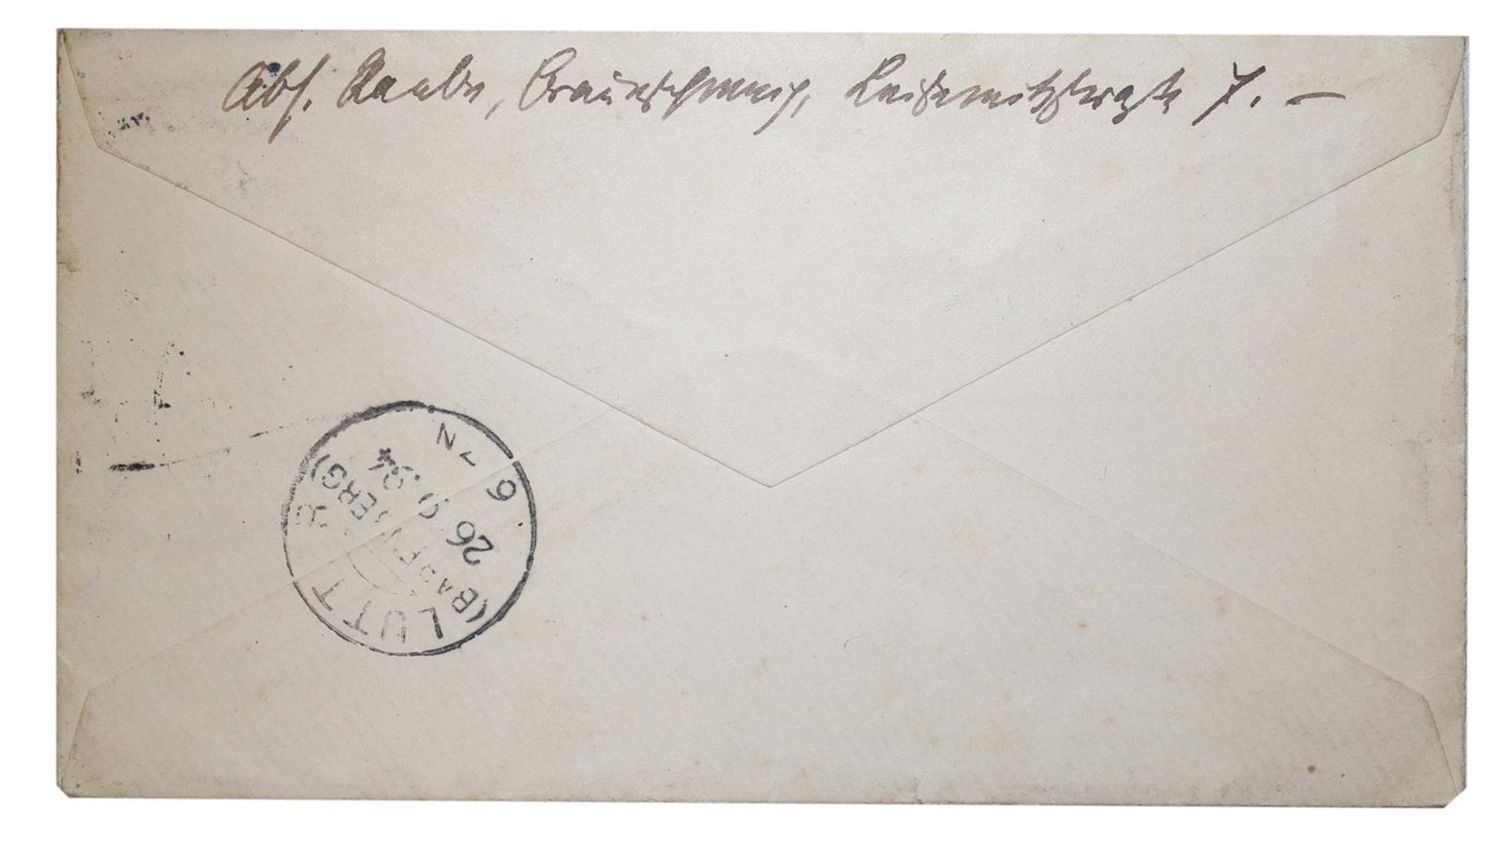 Abs. Raabe, Braunschweig, Leisewitzstraße 7. —
LUTTER
(BARENBERG)
26 9.94
6 7N